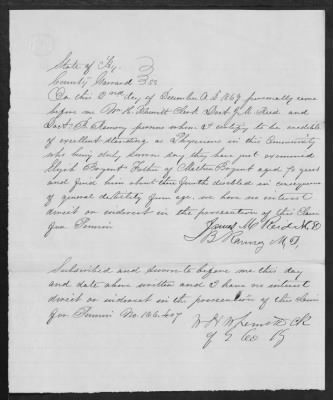 State of Ky.
County Garrard } ss
On this 2nd day of December A D 1869 personally came
before me Wm H. Clerk Doct J. M. Reid and
Doct B. Ramsey persons whom I certify to be credible
of excellent standing as Physicians in this Community
who being duly sworn say they have just examined
Elijah Father of aged 70 years
and find him about three fourths disabled in consequence
of general debility from age. we have no interest
direct or indirect in the prosecution of this Claim
for Pension
James M Reid M.D
B. Ramsey M.D.
Subscribed and sworn to before me this day
and date above written and I have no interest
direct or indirect in the prosecution of this Claim
for Pension No. 166.407
W. H. Clk
of G Co Ky